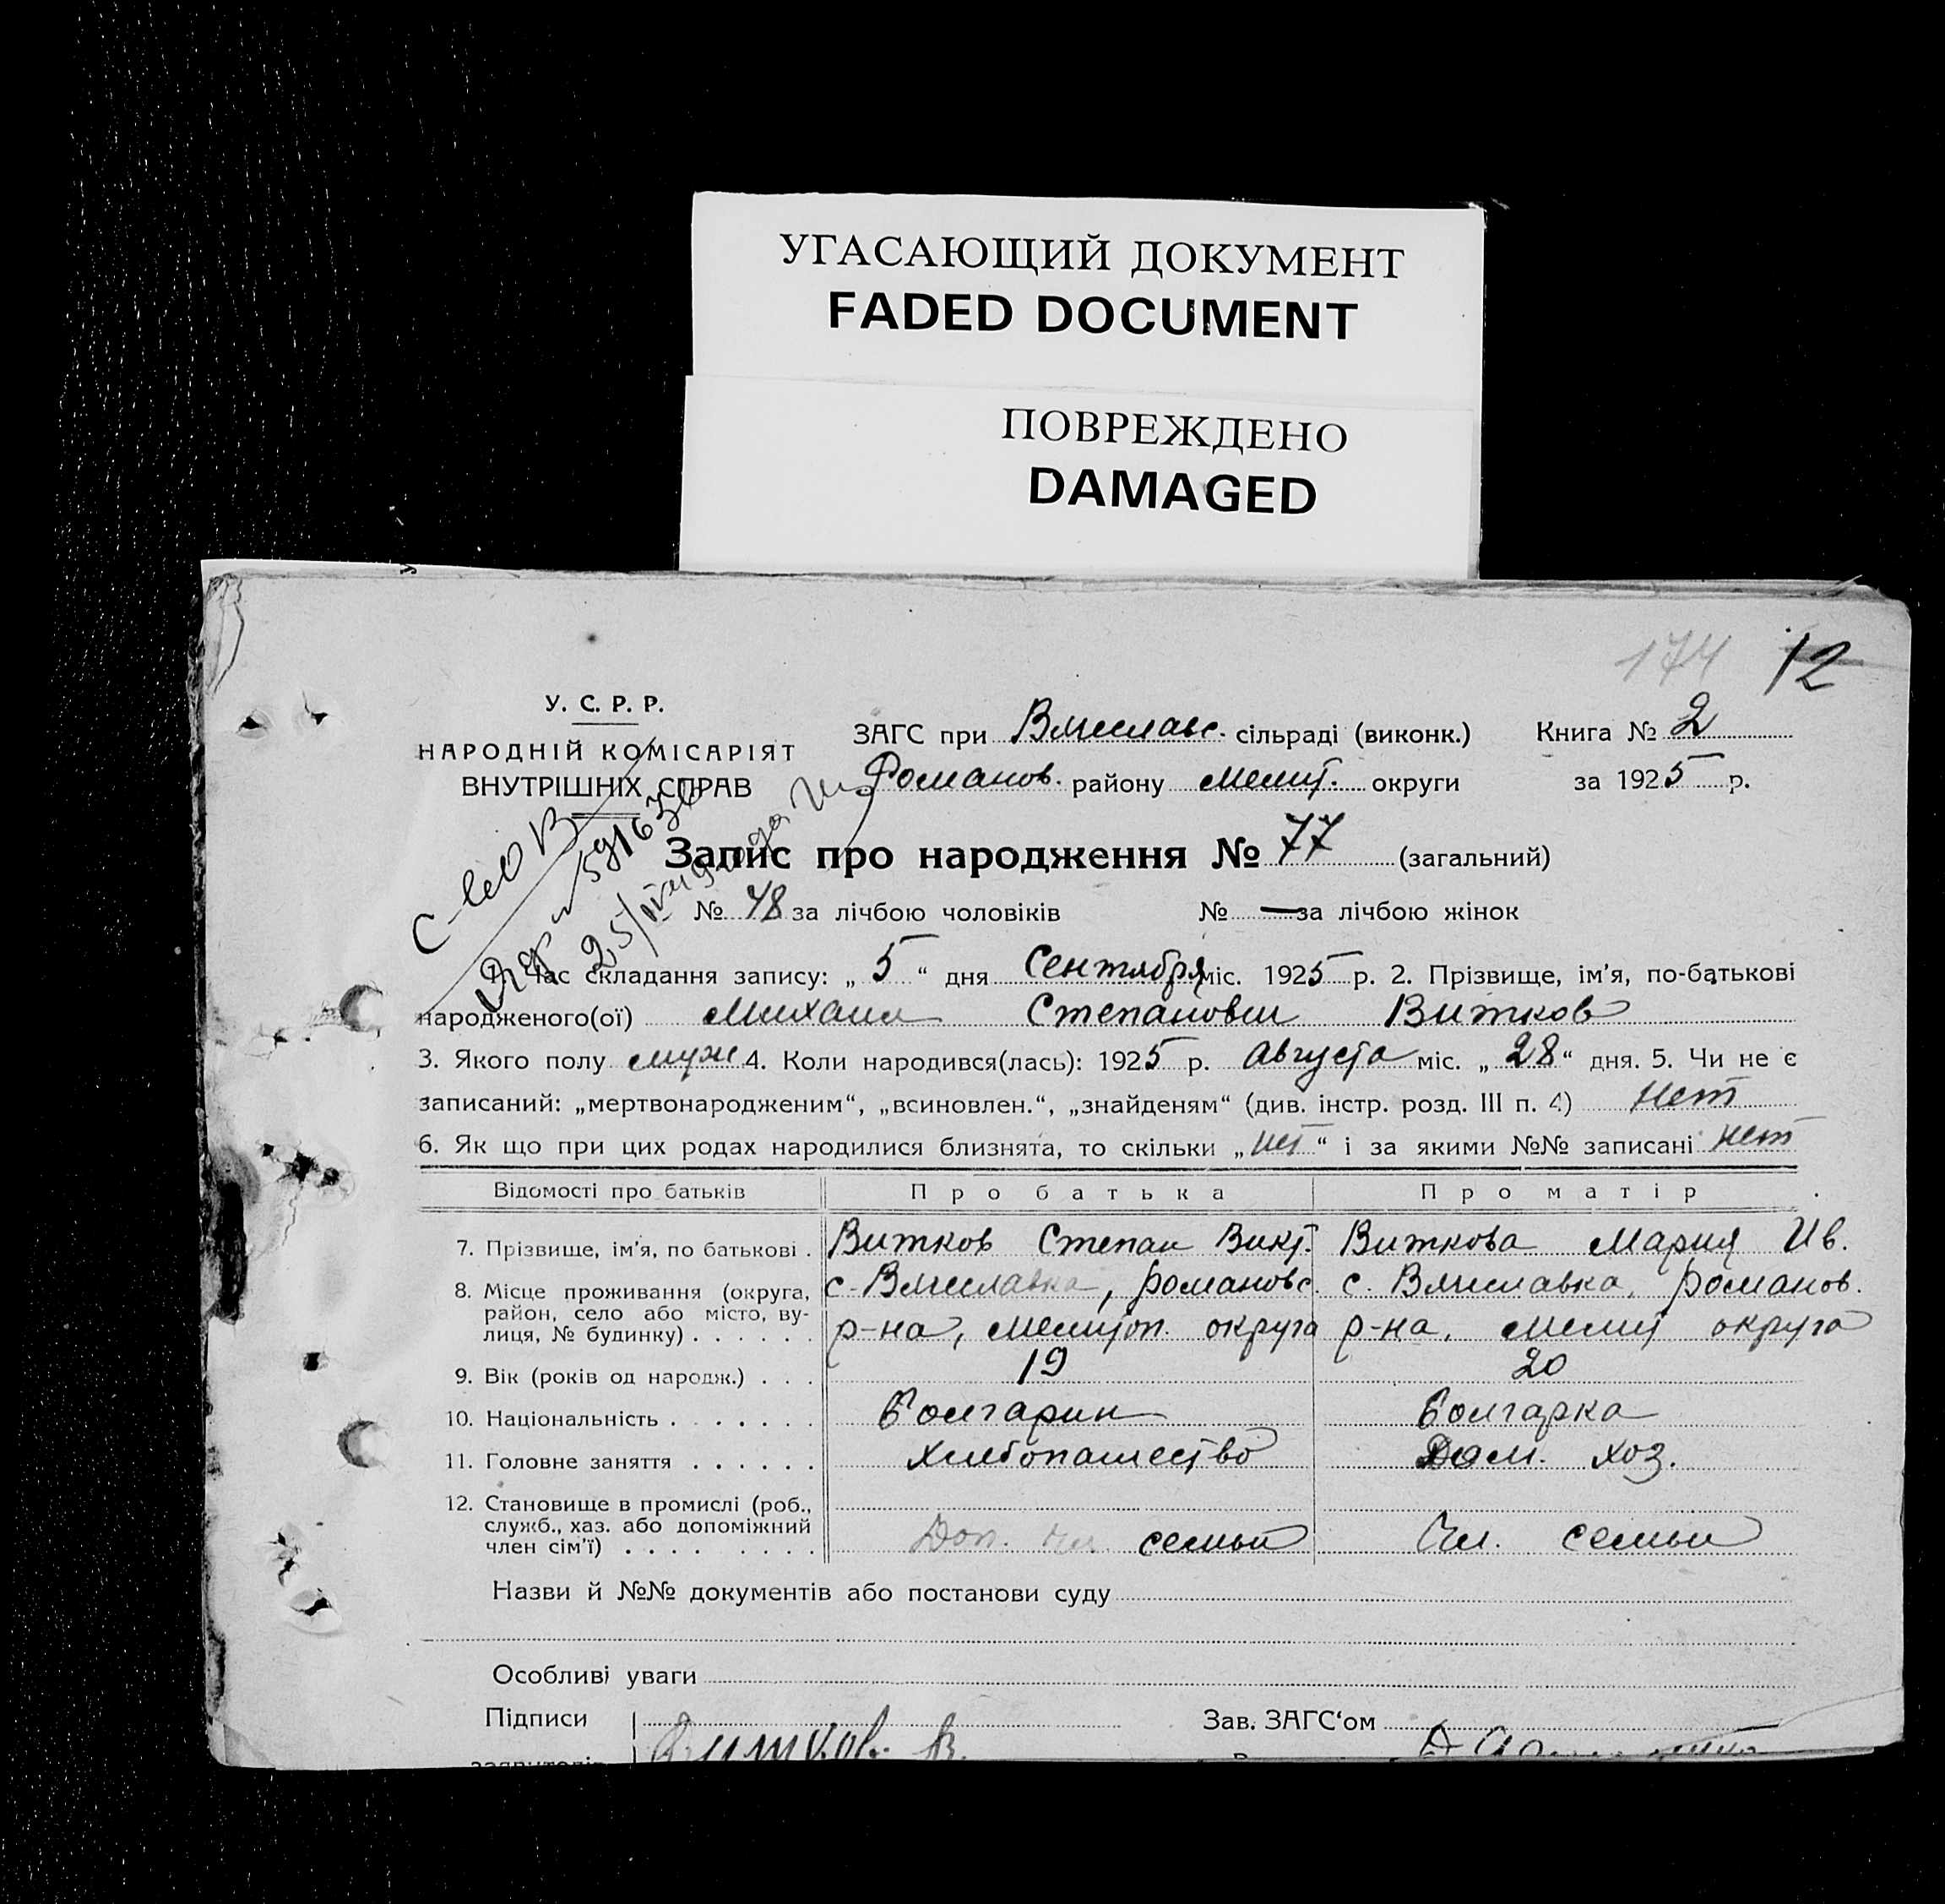 УГАСАЮЩИЙ ДОКУМЕНТ
FADED DOCUMENT
ПОВРЕЖДЕНО
DAMAGED
174 12
У. С. Р. Р.
НАРОДНІЙ КОМІСАРІЯТ
ВНУТРІШНІХ СПРАВ
ЗАГС при сільраді (виконк.) Книга № 2
Романов. району Мелит. округи за 1925 р.
Запис про народження № 77 (загальний)
№ 48 за лічбою чоловіків № — за лічбою жінок
1. Час складання запису: „ 5 “ дня Сентября міс. 1925 р. 2. Прізвище, ім’я, по-батькові
народженого(ої) Михаил Степанович Витков
3. Якого полу муж 4. Коли народився(лась): 1925 р. Августа міс. „ 28 “ дня. 5. Чи не є
записаний: „мертвонародженим“, „всиновлен.“, „знайденям“ (див. інстр. розд. III п. 4) нет
6. Як що при цих родах народилися близнята, то скільки „ нет “ і за якими №№ записані нет
Відомості про батьків Про батька Про матір
7. Прізвище, ім’я, по батькові . Витков Степан Викт. Виткова Мария Ив.
8. Місце проживання (округа, район, село або місто, вулиця, № будинку) . . . . . .
с. романовс. с. Романов.
р-на, Мелитоп. округа р-на, Мелит округа
9. Вік (років од народж.) . . . 19 20
10. Національність . . . . . . . Болгарин болгарка
11. Головне заняття . . . . . . хлебопашество Дом. хоз.
12. Становище в промислі (роб., служб., хаз. або допоміжний член сім’ї) . . . . . . . . .
Доп. чл. семьи Чл. семьи
Назви й №№ документів або постанови суду
Особливі уваги
Підписи Витков В. Зав. ЗАГС‘ом